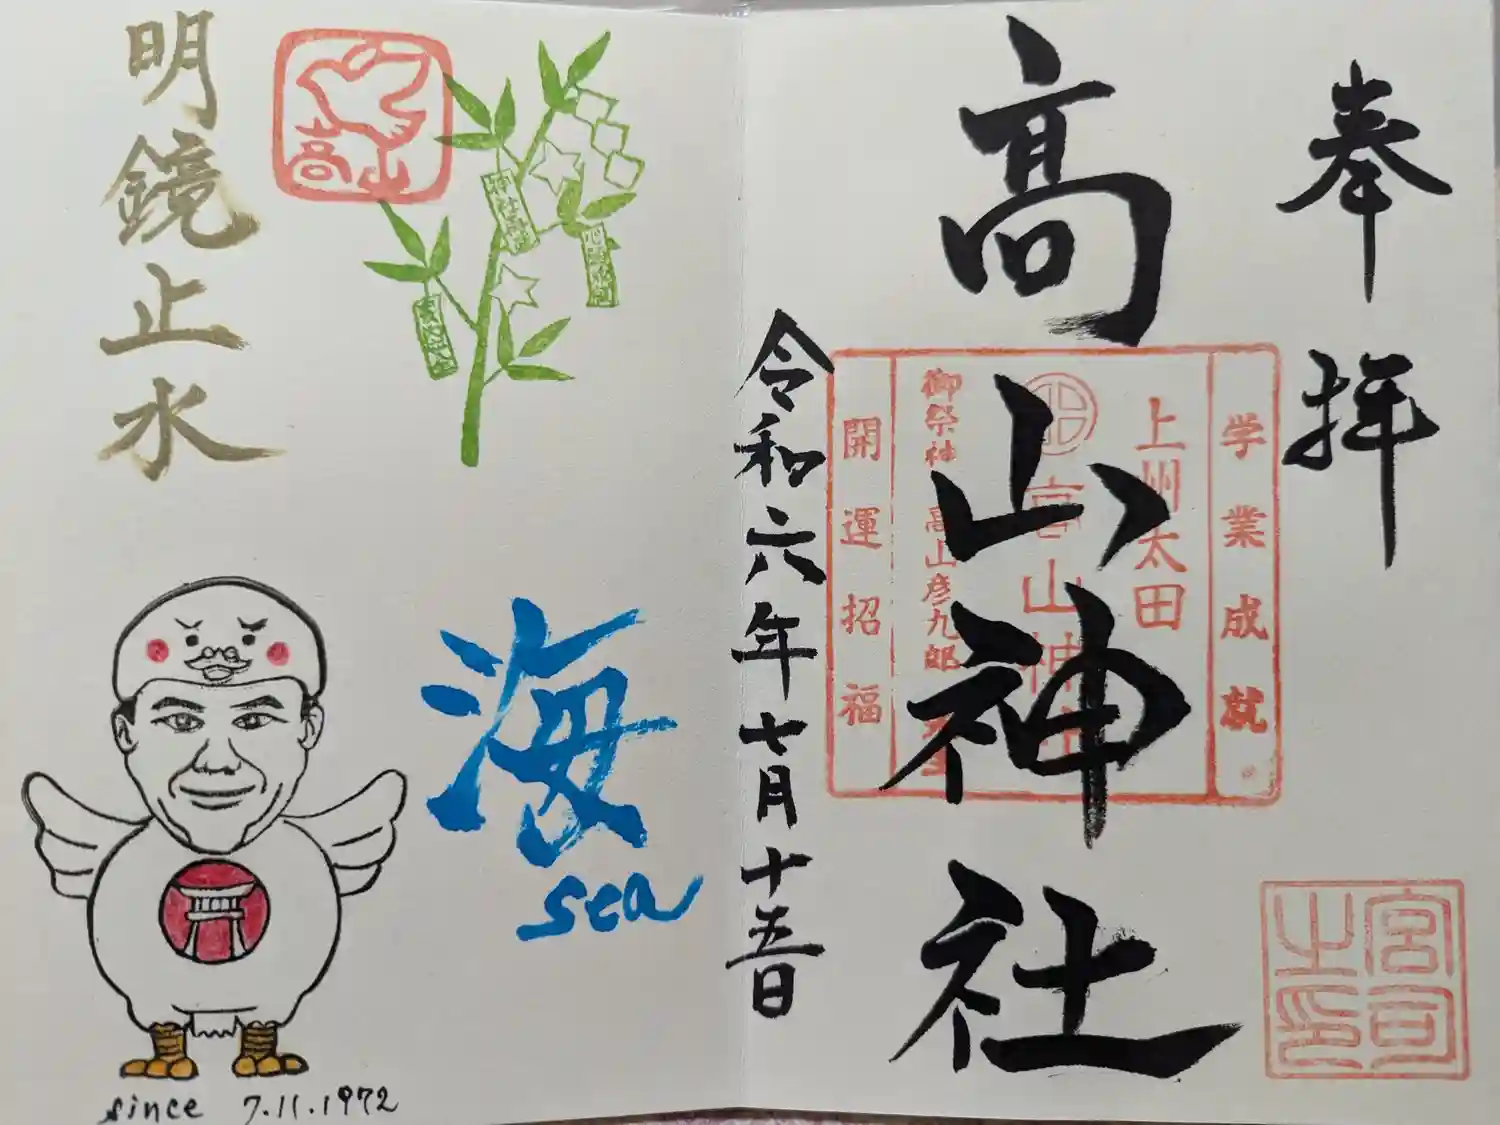 奉拝
高山神社
学業成就。
上州太田
高山神社
御祭神 高山彦九郎
開運招福
宮司之印
令和六年七月十五日
高山
明鏡止水
海
sea
since 7.11.1972